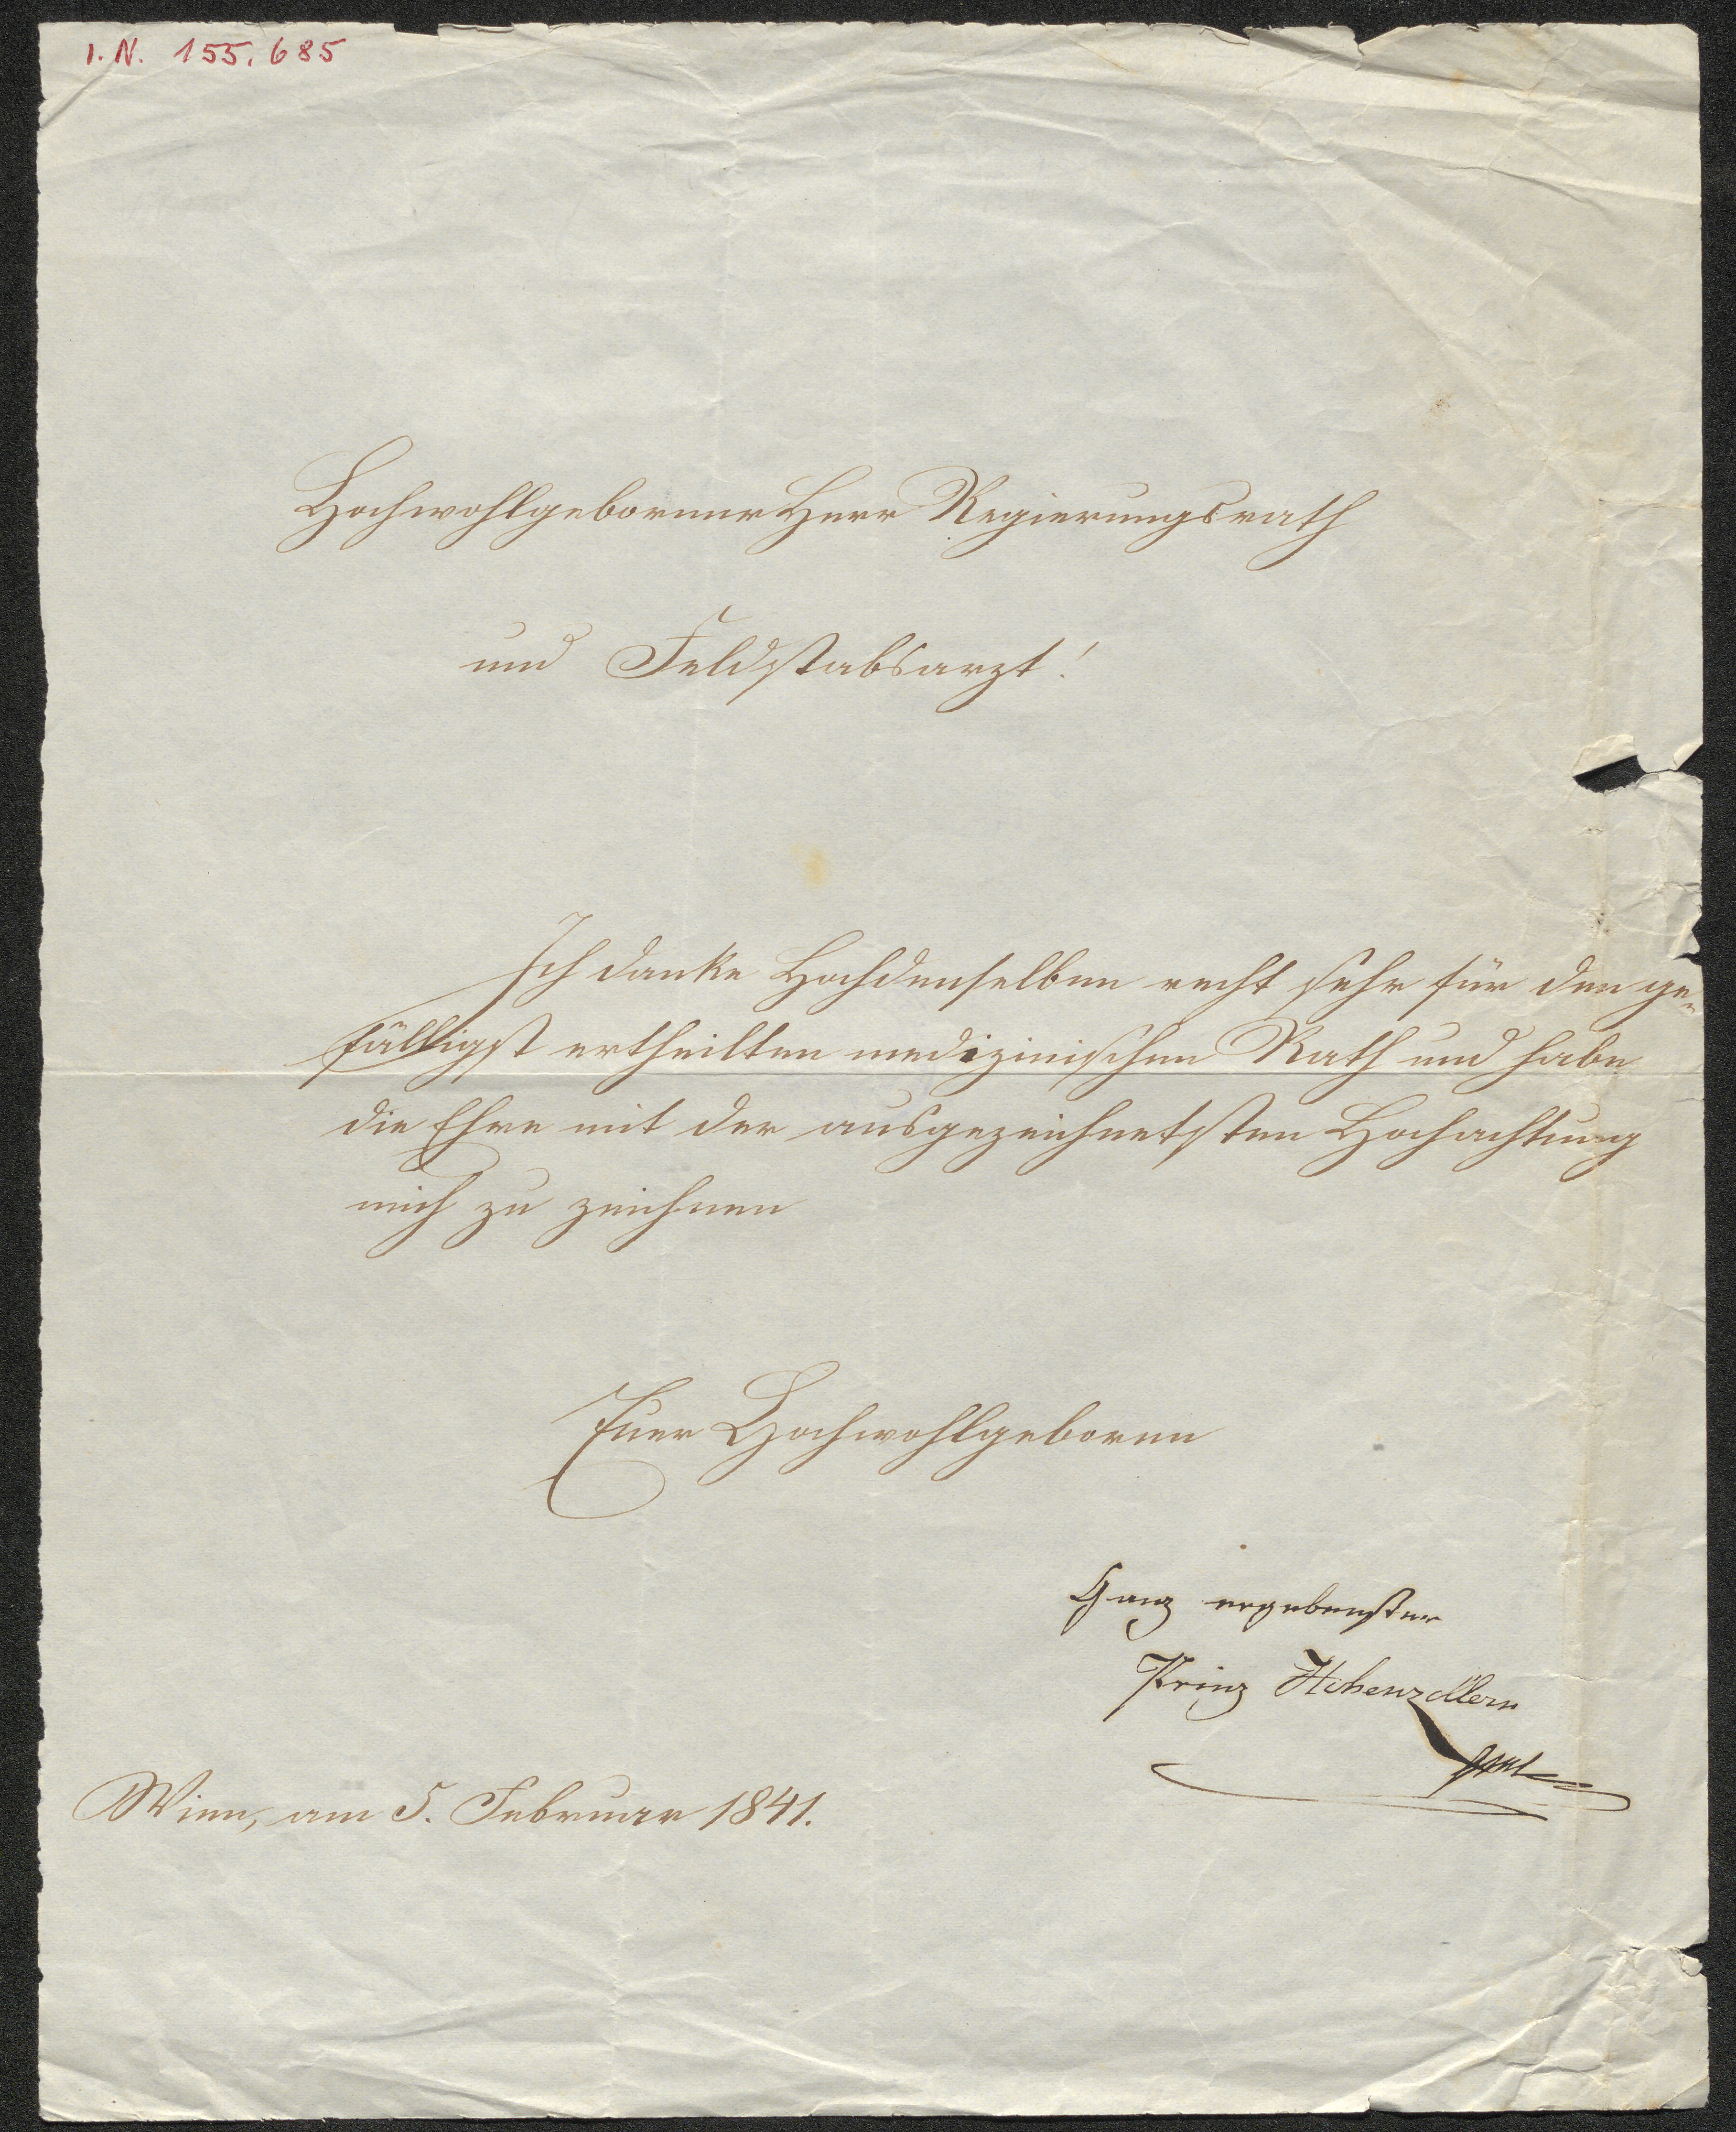 I.N. 155.685
Hochwohlgeborner Herr Regierungsrath
und Feldstabsarzt!
Ich danke Hochdenselben recht sehr für den ge-
fälligst ertheilten medizinischen Rath und habe
die Ehre mit der ausgezeichnetsten Hochachtung
mich zu zeichnen
Euer Hochwohlgeboren
Ganz ergebenster
Prinz Hohenzollern
Wien, am 5. Februar 1841.